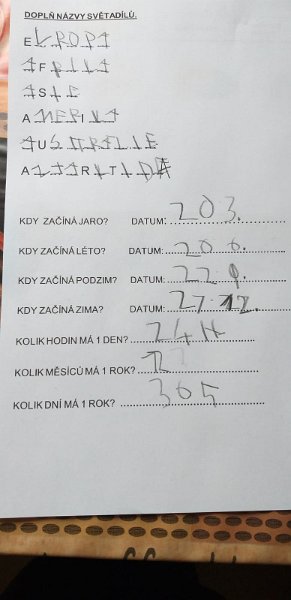 DOPLŇ NÁZVY SVĚTADÍLŮ.
EVROPA
AFRIKA
ASIE
AMERIKA
AUSTRALIE
KDY ZAČÍNÁ JARO? DATUM: 20 3.
KDY ZAČÍNÁ LÉTO? DATUM: 20 6.
KDY ZAČÍNÁ PODZIM? DATUM: 22 9.
KDY ZAČÍNÁ ZIMA? DATUM: 21 12.
KOLIK HODIN MÁ 1 DEN? 24H
KOLIK MĚSÍCŮ MÁ 1 ROK? 12
KOLIK DNÍ MÁ 1 ROK? 365